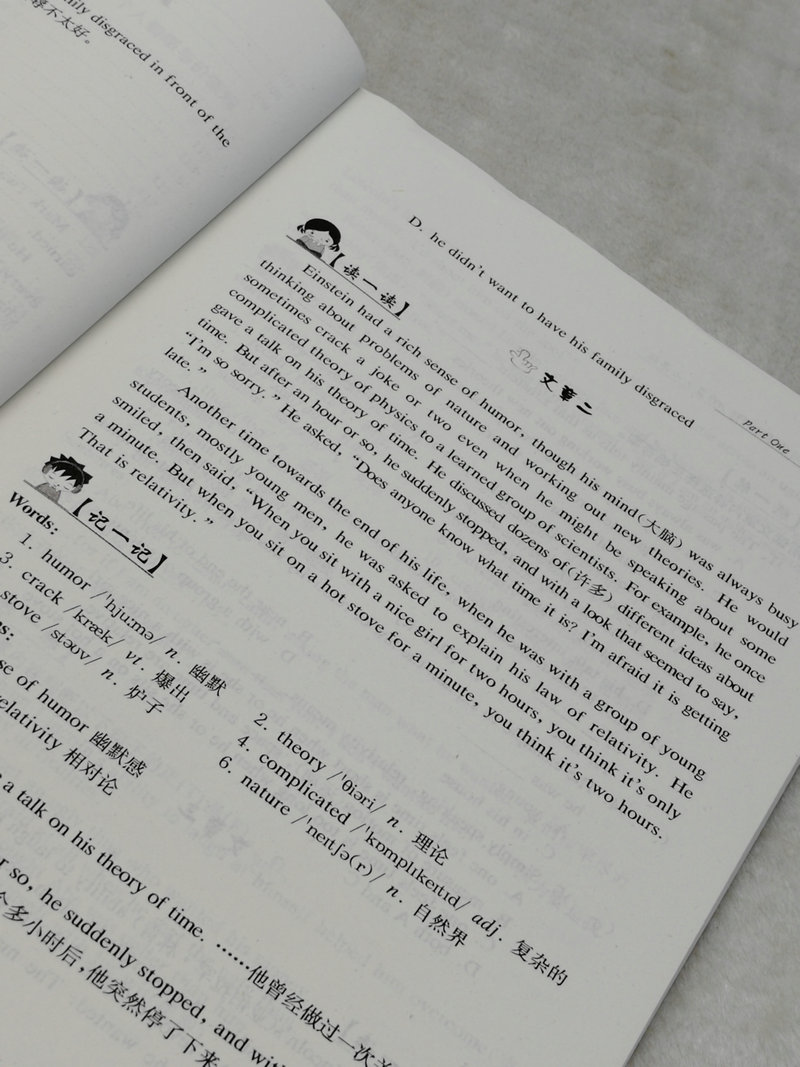 mily disgraced in front of the
得不太好。
D. he didn't want to have his family disgraced
Part One
文章二
【读一读】
Einstein had a rich sense of humor, though his mind(大脑) was always busy
thinking about problems of nature and working out new theories. He would
sometimes crack a joke or two even when he might be speaking about some
complicated theory of physics to a learned group of scientists. For example, he once
gave a talk on his theory of time. He discussed dozens of(许多) different ideas about
time. But after an hour or so, he suddenly stopped, and with a look that seemed to say,
“I'm so sorry.” He asked, “Does anyone know what time it is? I'm afraid it is getting
late.”
Another time towards the end of his life, when he was with a group of young
students, mostly young men, he was asked to explain his law of relativity. He
smiled, then said, “When you sit with a nice girl for two hours, you think it's only
a minute. But when you sit on a hot stove for a minute, you think it's two hours.
That is relativity.”
【记一记】
Words:
1. humor /'hju:mə/ n. 幽默
2. theory /'θiəri/ n. 理论
3. crack /kræk/ vt. 爆出
4. complicated /'kɒmplɪkeɪtɪd/ adj. 复杂的
stove /stəʊv/ n. 炉子
6. nature /'neɪtʃə(r)/ n. 自然界
se of humor 幽默感
relativity 相对论
a talk on his theory of time. ……他曾经做过一次关
r so, he suddenly stopped, and wit
个多小时后,他突然停了下来